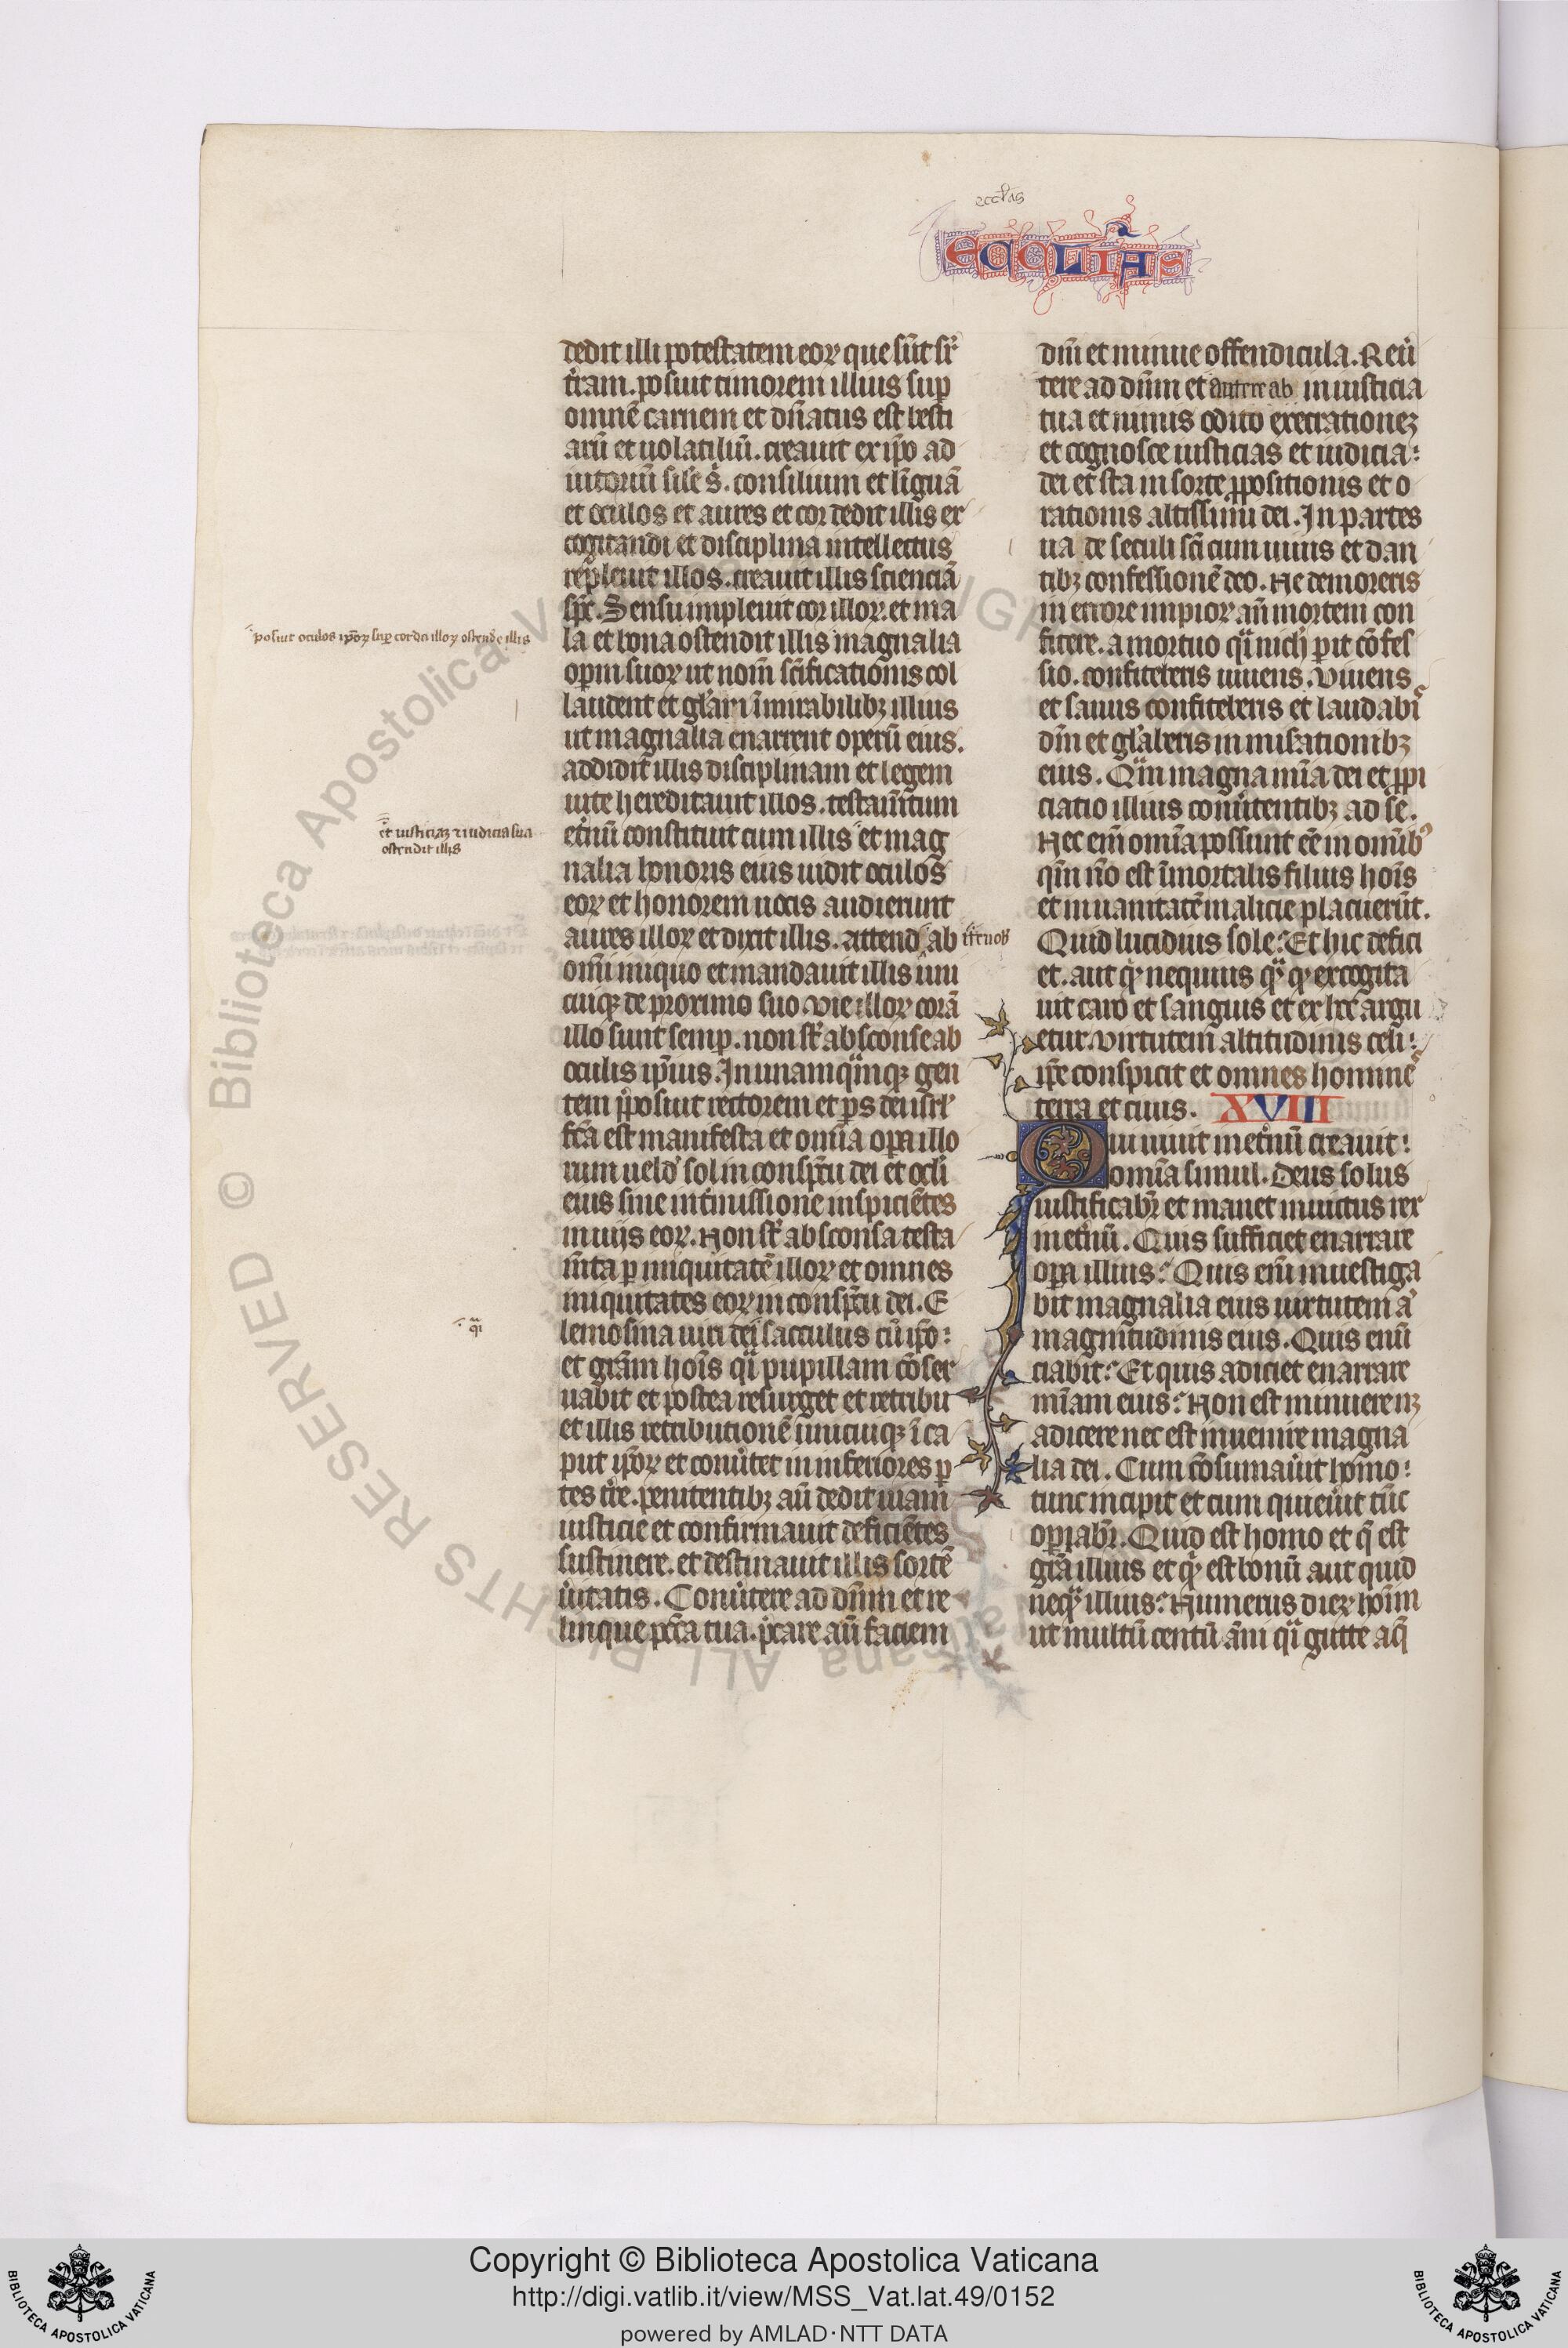 eccl'as
ECCLIAS
dedit illi potestatem eoꝝ que sūt sr̄
t̾ram. posuit timorem illius suꝑ
omnē carnem et dn̄atus est besti
arū et uolatiliū. creauit ex ip̄o ad
iutoriū sile s̄. consilium et linguā
et oculos et aures et cor dedit illis ex
cogitandi et disciplina intellectus
repleuit illos. creauit illis scienciā
sp̄c. Sensu impleuit cor illoꝝ. et ma
posuit oculos ip̄oꝝ suꝑ corda illoꝝ ostende illis
la et bona ostendit illis magnalia
opm̄ suoꝝ ut nom̄ scīficationis col
laudent et gl'ari ī mirabilibꝫ illius
ut magnalia enarrent operū eius.
addidit illis disciplinam et legem
uite hereditauit illos. testam̄tum
et iusticiaꝫ ⁊ iudicia sua
ostendit illis
et̾nū constituit cum illis et mag
nalia honoris eius uidit oculos
eoꝝ et honorem uocis audierunt
aures illoꝝ et dixit illis. attend ab
om̄i iniquo et mandauit illis uni
cuiqꝫ de proximo suo. vie illoꝝ corā
illo sunt semꝑ. non sr̄ absconse ab
oculis ip̄ius. In unamq̄mqꝫ gen
tem p̄posuit rectorem et ꝑs dei isrl'
fc̄a est manifesta et om̄ia oꝑa illo
rum uelud' sol in conspc̄tu dei et ocl'i
eius sine int̾missione inspiciētes
in uijs eoꝝ. Non sr̄ absconsa testa
m̄ta ꝑ iniquitatē illoꝝ et omnes
iniquitates eoꝝ in conspc̄tu dei. E
q̄i
lemosina uiri dei sacculus cū ip̄o:
et gr̄am hoīs q̄i pupillam cōser
uabit et postea resurget et retribu
et illis retributionē unicuiqꝫ ī ca
put ip̄oꝝ et conu̾tet in inferiores ꝑ
tes t̾re. penitentibꝫ aū dedit uiam
iusticie et confirmauit deficiētes
sustinere. et destinauit illis sortē
u̾itatis. Conu̾tere ad dn̄m et re
linque pcc̄a tua. p̾care aū faciem
dn̄i et minue offendicula. Reu̾
tere ad dn̄m et auertere ab iniusticia
tua et nimis odito execrationeꝫ
et cognosce iusticias et iudicia:
dei et sta in sorte ꝓpositionis et o
rationis altissimi dei. In partes
ua de seculi sc̄i cum uiuis et dan
tibꝫ confessionē deo. Ne demoreris
in errore impioꝝ an̄ mortem con
fitere. a mortuo q̄i nich' ꝑit cōfes
sio. confiteberis uiuens. viuens
et sanus confiteberis et laudabis
dm̄ et gl'aberis in mis̄ationibꝫ
eius. Qm̄ magna mīa dei et ꝓpi
ciatio illius conu̾tentibꝫ ad se.
Nec em̄ om̄ia possunt eē in om̄ibꝰ
qm̄ nō est īmortalis filius hoīs
et in uanitatē malicie placuerūt.
Quid lucidius sole? Et hic defici
et. aut q̄ nequius q̄ q̄ excogita
uit caro et sanguis et ex hoc argu
etur. virtutem altitudinis celi:
ip̄e conspicit et omnes homines
terra et cinis. XVIII
Qui uiuit inet̾nū creauit:
omīa simul. Deus solus
iustificabr̄ et manet inuictus rex
inet̾nū. Quis sufficiet enarrare
oꝑa illius? Quis em̄ inuestiga
bit magnalia eius uirtutem a'
magnitudinis eius. Quis enū
ciabit? Et quis adiciet enarrare
mīam eius? Non est minuere neꝫ
adicere nec est inuenire magna
lia dei. Cum cōsumau̾it homo:
tunc incipit et cum quieu̾it tūc
oꝑabr̄. Quid est homo et q̄ est
gr̄a illius et q̄ est bonū aut quid
neq̄ illius? Numerus dieꝝ hoīm
ut multū centū an̄i q̄i gutte aq̄
Copyright © Biblioteca Apostolica Vaticana
http://digi.vatlib.it/view/MSS_Vat.lat.49/0152
powered by AMLAD·NTT DATA
BIBLIOTECA APOSTOLICA VATICANA
BIBLIOTECA APOSTOLICA VATICANA